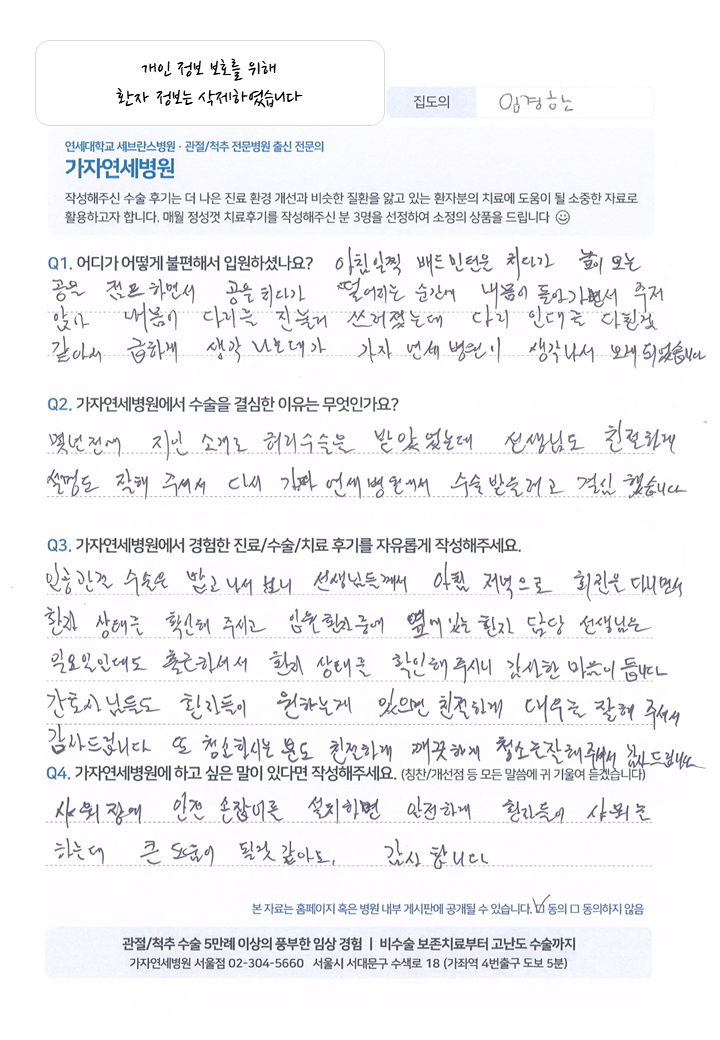 개인 정보 보호를 위해
환자 정보는 삭제하였습니다
집도의 임경한
연세대학교 세브란스병원 · 관절/척추 전문병원 출신 전문의
가자연세병원
작성해주신 수술 후기는 더 나은 진료 환경 개선과 비슷한 질환을 앓고 있는 환자분의 치료에 도움이 될 소중한 자료로
활용하고자 합니다. 매월 정성껏 치료후기를 작성해주신 분 3명을 선정하여 소정의 상품을 드립니다
Q1. 어디가 어떻게 불편해서 입원하셨나요? 아침일찍 배드민턴을 치다가 높이 오는
공을 점프하면서 공을 치다가 떨어지는 순간에 내몸이 돌아가면서 주저
앉아 내몸이 다리를 짓눌러 쓰러졌는데 다리 인대를 다친것
같아서 급하게 생각나는데가 가자 연세병원이 생각나서 오게되었습니다
Q2. 가자연세병원에서 수술을 결심한 이유는 무엇인가요?
몇년전에 지인 소개로 허리수술을 받았었는데 선생님도 친절하게
설명도 잘해 주셔서 다시 가자 연세병원에서 수술받을려고 결심 했습니다
Q3. 가자연세병원에서 경험한 진료/수술/치료 후기를 자유롭게 작성해주세요.
인공관절 수술을 받고나서 보니 선생님들께서 아침 저녁으로 회진을 다니면서
환자 상태를 확인해 주시고 입원환자중에 옆에있는 환자 담당 선생님은
일요일인데도 출근하셔서 환자 상태를 확인해주시니 감사한 마음이 듭니다
간호사님들도 환자들이 원하는게 있으면 친절하게 대우를 잘해 주셔서
감사드립니다 또 청소하시는 분도 친절하게 깨끗하게 청소를잘해주셔서 감사드립니다
Q4. 가자연세병원에 하고 싶은 말이 있다면 작성해주세요. (칭찬/개선점 등 모든 말씀에 귀 기울여 듣겠습니다)
샤워장에 안전 손잡이를 설치하면 안전하게 환자들이 샤워를
하는데 큰 도움이 될것 같아요. 감사 합니다
본 자료는 홈페이지 혹은 병원 내부 게시판에 공개될 수 있습니다. ☑ 동의 □ 동의하지 않음
관절/척추 수술 5만례 이상의 풍부한 임상 경험 | 비수술 보존치료부터 고난도 수술까지
가자연세병원 서울점 02-304-5660 서울시 서대문구 수색로 18 (가좌역 4번출구 도보 5분)